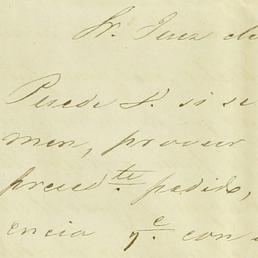 Sr. Juez de
Puede S. si se
men, proveer
preced.te pedido,
encia y.e con